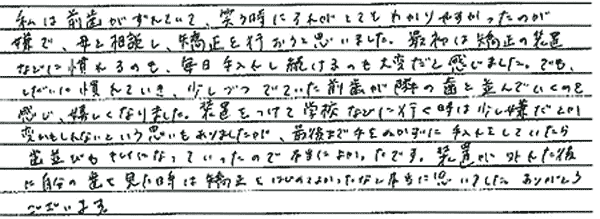 私は前歯がずれていて、笑う時にそれがとてもわかりやすかったのが
嫌で、母と相談し、矯正を行おうと思いました。最初は矯正の装置
などに慣れるのも、毎日手入れし続けるのも大変だと感じました。でも、
しだいに慣れていき、少しづつでていた前歯が隣の歯と並んでいくのを
感じ、嬉しくなりました。装置をつけて学校などに行く時は少し嫌だとか
変かもしれないという思いもありましたが、最後まで手をぬかずに手入れをしていたら
歯並びもキレイになっていったので本当によかったです。装置が外れた後
に自分の歯を見た時は矯正をはじめてよかったなと本当に思いました。ありがとう
ございます。